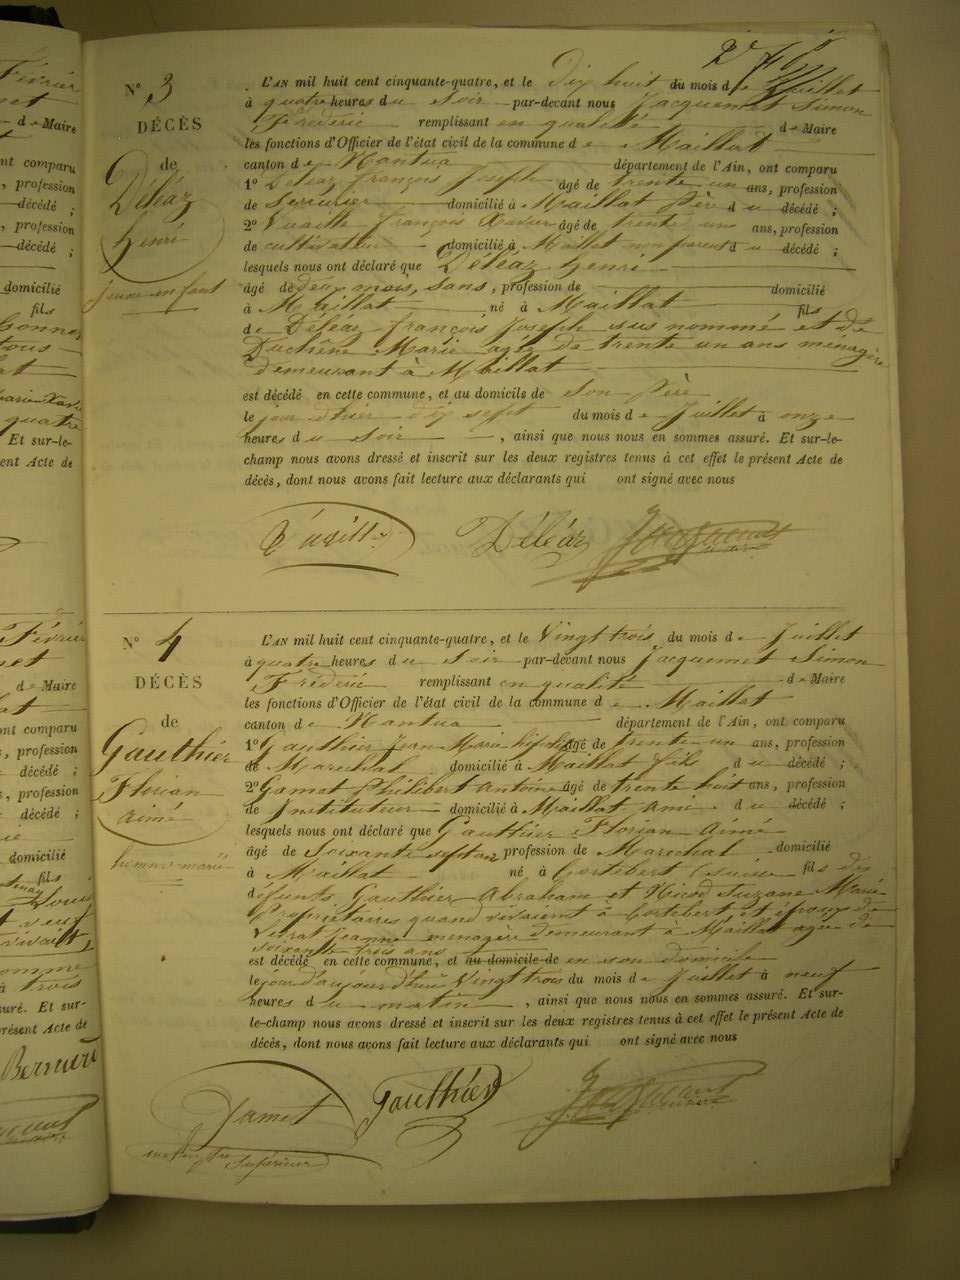 Nº 3
DÉCÈS
de
Déléaz
henri
jeune enfant
L'AN mil huit cent cinquante-quatre, et le Dix huit du mois de Juillet
à quatre heures du soir par-devant nous Jacquemet Simon
Frédéric remplissant en qualité de Maire
les fonctions d'Officier de l'état civil de la commune de Maillat
canton de Nantua département de l'Ain, ont comparu
1º Déléaz françois Joseph âgé de trente un ans, profession
de Serrurier domicilié à Maillat Père du décédé ;
2º Vuaille françois Xavier âgé de trente un ans, profession
de cultivateur domicilié à Maillat non parent du décédé ;
lesquels nous ont déclaré que Déléaz henri
âgé de deux mois, sans, profession de domicilié
à Maillat né à Maillat fils
de Déléaz françois Joseph sus nommé et de
Duchêne Marie agée de trente un ans ménagère
demeurant à Maillat
est décédé en cette commune, et au domicile de son Père
le jour d'hier dix sept du mois de Juillet à onze
heures du soir , ainsi que nous nous en sommes assuré. Et sur-le-
champ nous avons dressé et inscrit sur les deux registres tenus à cet effet le présent Acte de
décès, dont nous avons fait lecture aux déclarants qui ont signé avec nous
Déléaz
Nº 4
DÉCÈS
de
Gauthier
Florian
Aimé
homme marié
L'AN mil huit cent cinquante-quatre, et le Vingt trois du mois de Juillet
à quatre heures du soir par-devant nous Jacquemet Simon
Frédéric remplissant en qualité de Maire
les fonctions d'Officier de l'état civil de la commune de Maillat
canton de Nantua département de l'Ain, ont comparu
1º Gauthier Jean Marie hipolite âgé de trente un ans, profession
de Marechal domicilié à Maillat fils du décédé ;
2º Gamet Philibert Antoine âgé de trente huit ans, profession
de Instituteur domicilié à Maillat ami du décédé ;
lesquels nous ont déclaré que Gauthier Florian Aimé
âgé de Soixante sept ans profession de Marechal domicilié
à Maillat né à Cortibert fils des
défunts Gauthier Abraham et Suzane Marie
Propriétaires quand vivaient à Cortibert et époux de
Jeanne ménagère demeurant à Maillat agée de
soixante trois ans
est décédé en cette commune, et au domicile de en son domicile
le jour d'aujourd'hui Vingt trois du mois de Juillet à neuf
heures du matin , ainsi que nous nous en sommes assuré. Et sur-
le-champ nous avons dressé et inscrit sur les deux registres tenus à cet effet le présent Acte de
décès, dont nous avons fait lecture aux déclarants qui ont signé avec nous
Gamet Gauthier
Supérieur